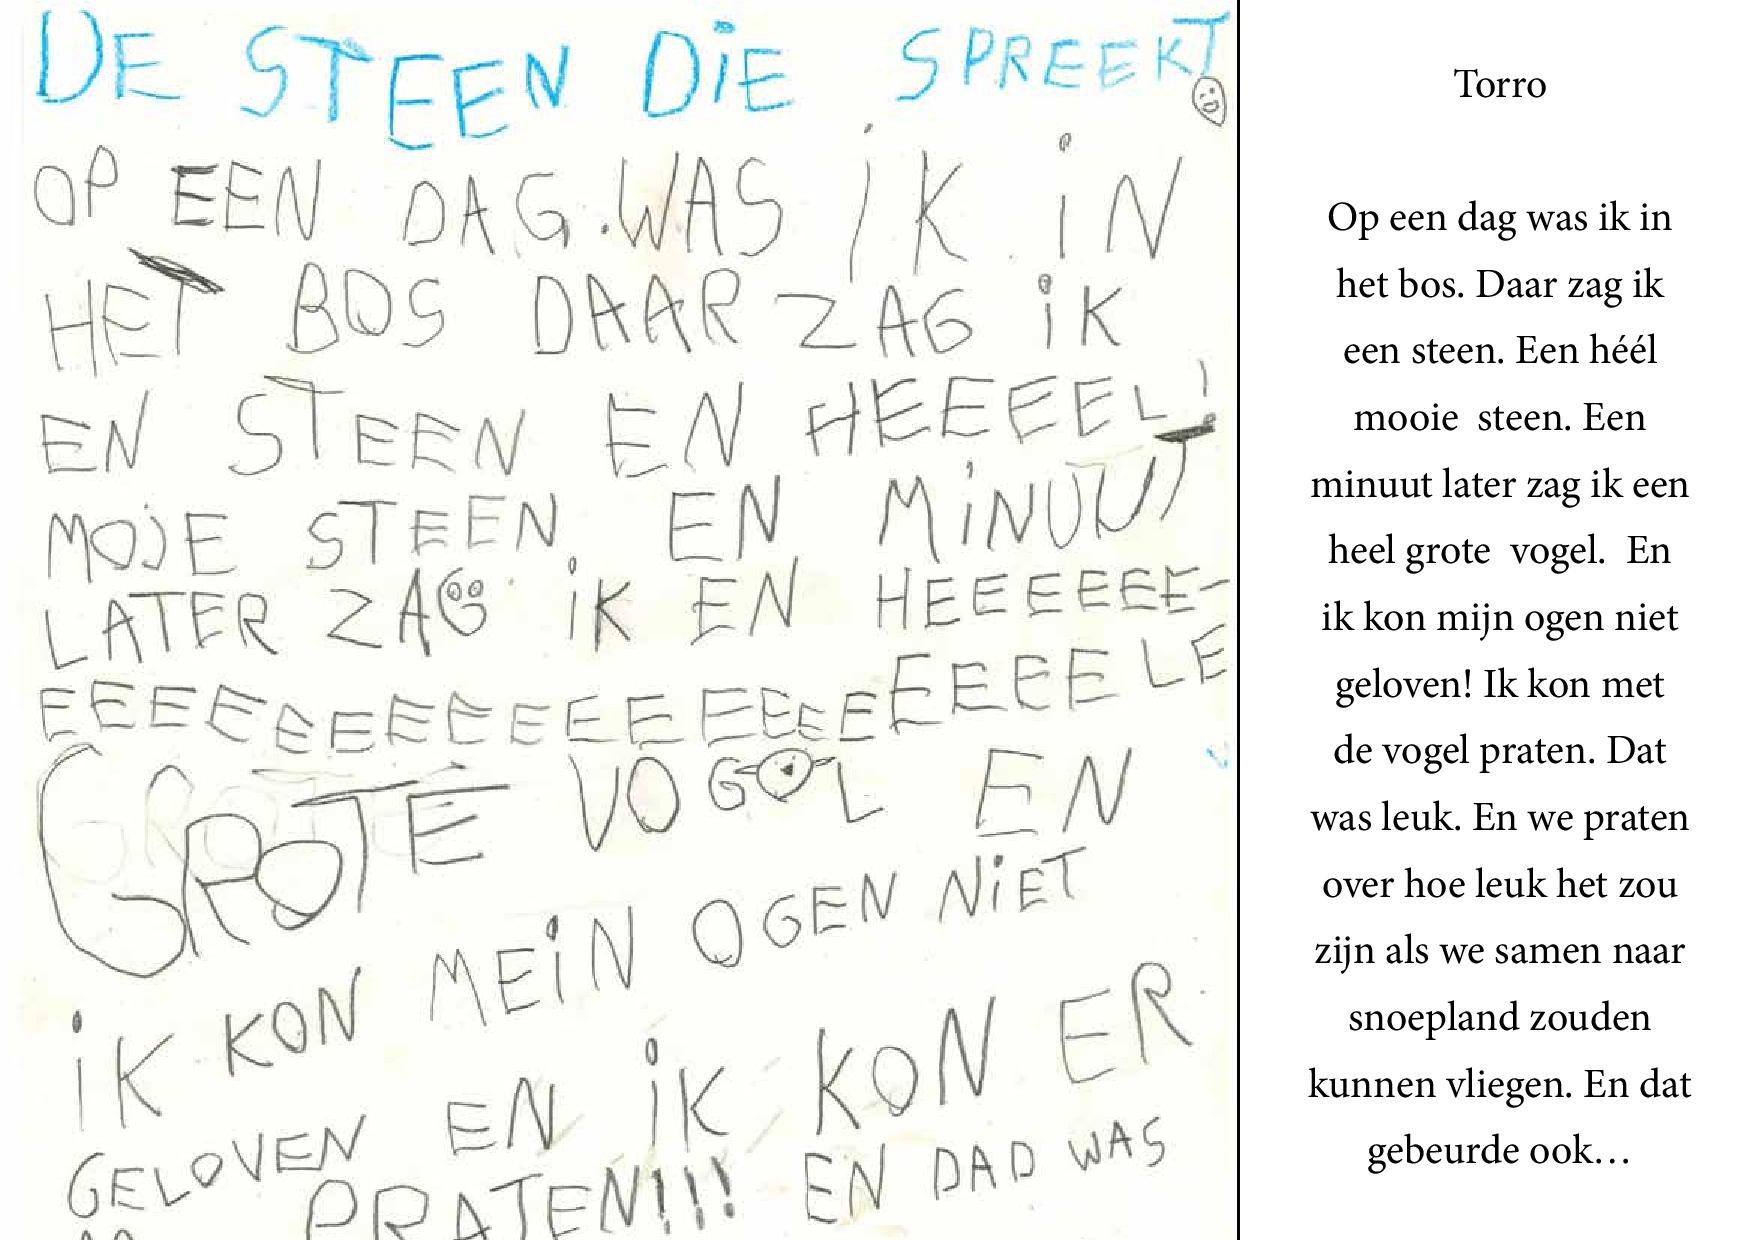 DE STEEN DiE SPREEKT
OP EEN DAG.WAS iK iN
HET BOS DAAR ZAG iK
EN STEEN EN HEEEEL!
MOjE STEEN EN MiNUUT
LATER ZAG iK EN HEEEEEEE-
EEEEEEEEEEEEEEEEEEEEEELE
GROTE VOGOL EN
iK KON MEiN OGEN NiET
GELOVEN EN iK KON ER
PRATEN!!! EN DAD WAS
Torro
Op een dag was ik in
het bos. Daar zag ik
een steen. Een héél
mooie steen. Een
minuut later zag ik een
heel grote vogel. En
ik kon mijn ogen niet
geloven! Ik kon met
de vogel praten. Dat
was leuk. En we praten
over hoe leuk het zou
zijn als we samen naar
snoepland zouden
kunnen vliegen. En dat
gebeurde ook…